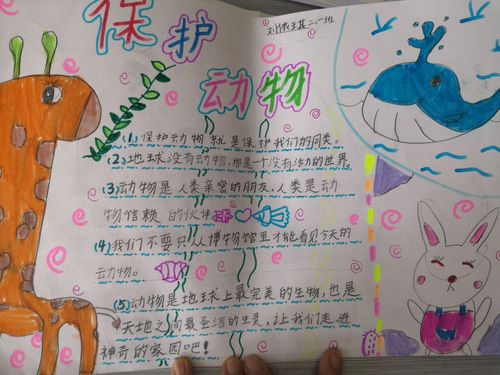 保护
动物
二、一班
(1)保护动物就是保护我们的同类。
(2)地球没有动物,那是一个没有活力的世界
(3)动物是人类亲密的朋友,人类是动
物信赖的伙伴
(4)我们不要只从博物馆里才能看见今天的
动物。
(5)动物是地球上最完美的生物,也是
天地之间最圣洁的生灵,让我们走进
神奇的家园吧!